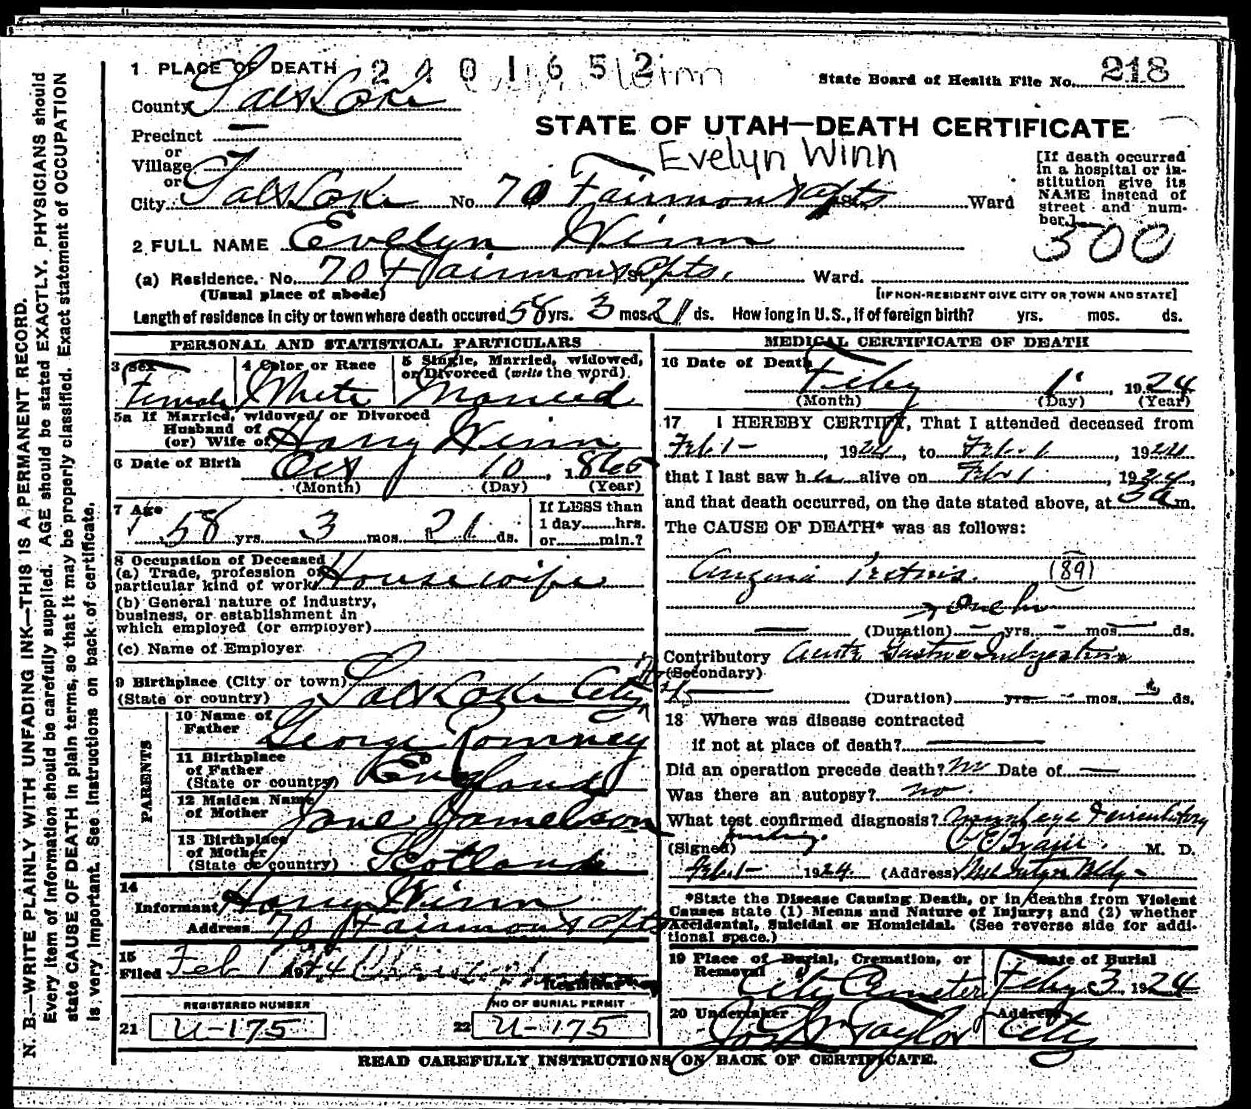 1 PLACE OF DEATH 2 4 0 1 6 5 2 Winn
State Board of Health File No. 218
County Salt Lake
Precinct —
or
Village
or
STATE OF UTAH—DEATH CERTIFICATE
Evelyn Winn
City Salt Lake No. 70 Fairmount Apts St. Ward
[If death occurred
in a hospital or in-
stitution give its
NAME instead of
street and num-
ber.]
500
2 FULL NAME Evelyn Winn
(a) Residence. No. 70 Fairmount St. Apts. Ward.
(Usual place of abode)
[IF NON-RESIDENT GIVE CITY OR TOWN AND STATE]
Length of residence in city or town where death occured 58 yrs. 3 mos. 21 ds. How long in U.S., if of foreign birth? yrs. mos. ds.
PERSONAL AND STATISTICAL PARTICULARS
3 Sex
Female
4 Color or Race
White
5 Single, Married, widowed,
or Divorced (write the word)
Married
5a If Married, widowed, or Divorced
Husband of
(or) Wife of Harry Winn
6 Date of Birth Oct 10, 1865
(Month) (Day) (Year)
7 Age
58 yrs. 3 mos. 21 ds.
If LESS than
1 day......hrs.
or......min.?
8 Occupation of Deceased
(a) Trade, profession or
particular kind of work Housewife
(b) General nature of industry,
business, or establishment in
which employed (or employer)
(c) Name of Employer
9 Birthplace (City or town) Salt Lake City
(State or country)
PARENTS
10 Name of
Father George Romney
11 Birthplace
of Father
(State or country) England
12 Maiden Name
of Mother Jane Jamelson
13 Birthplace
of Mother
(State or country) Scotland
14
Informant Harry Winn
Address 70 Fairmount Apts
15
Filed Feb 1 1924
Registrar
REGISTERED NUMBER
21 U-175
NO OF BURIAL PERMIT
22 U-175
MEDICAL CERTIFICATE OF DEATH
16 Date of Death
Feby 1", 1924
(Month) (Day) (Year)
17 I HEREBY CERTIFY, That I attended deceased from
Feb. 1-, 1924, to Feb. 1, 1924
that I last saw her alive on Feb 1, 1924,
and that death occurred, on the date stated above, at 3 a m.
The CAUSE OF DEATH* was as follows:
Angina Pectoris. (89)
One hr
— (Duration) — yrs. - mos. — ds.
Contributory Acute Gastric Indigestion
(Secondary)
(Duration) yrs. — mos. ds.
18 Where was disease contracted
if not at place of death? —
Did an operation precede death? no Date of —
Was there an autopsy? no.
What test confirmed diagnosis?
(Signed) M. D.
Feb. 1- 1924. (Address) Bldg-
*State the Disease Causing Death, or in deaths from Violent
Causes state (1) Means and Nature of Injury; and (2) whether
Accidental, Suicidal or Homicidal. (See reverse side for addi-
tional space.)
19 Place of Burial, Cremation, or
Removal
City Cemetery
Date of Burial
Feby 3 1924
20 Undertaker
Jos Wm Taylor
Address
City
READ CAREFULLY INSTRUCTIONS ON BACK OF CERTIFICATE.
N. B.—WRITE PLAINLY WITH UNFADING INK—THIS IS A PERMANENT RECORD.
Every item of information should be carefully supplied. AGE should be stated EXACTLY. PHYSICIANS should
state CAUSE OF DEATH in plain terms, so that it may be properly classified. Exact statement of OCCUPATION
is very important. See instructions on back of certificate.